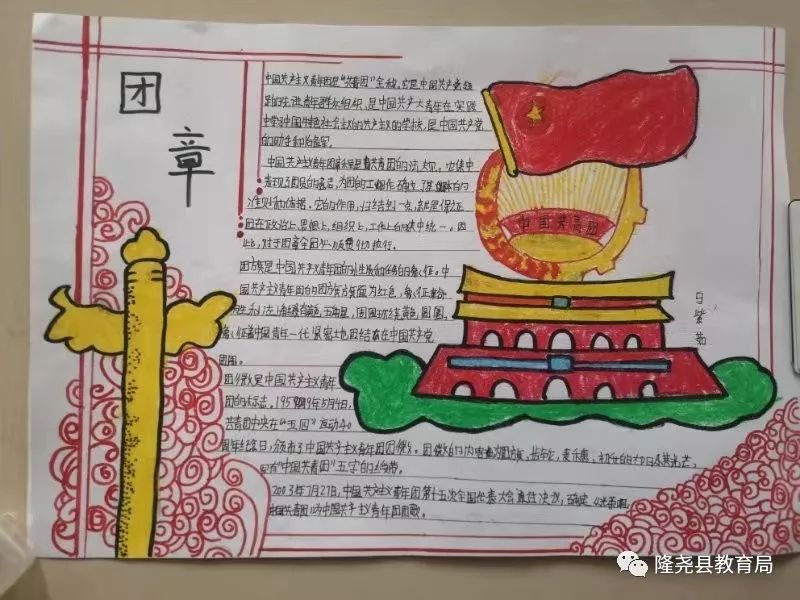 团
章
中国共产主义青年团是"共青团"全称,它是中国共产党领
导的先进青年群众组织,是中国共产主义青年在实践
中学习中国特色社会主义和共产主义的学校,是中国共产党
的助手和后备军。
中国共产主义青年团章程是共青团的 ,它集中
表现了团员的意志,为团的工作
准则和依据。它的作用,归结到一点,就是保证
团在政治上、思想上、组织上、工作上的集中统一。因
此,对于团章全团必须贯彻执行。
团旗是中国共产主义青年团的 象征。中
国共产主义青年团的团旗旗面为红色,象征革命
胜利;左上角缀黄色五角星,周围环绕黄色圆圈,
象征着中国青年一代紧密地团结在中国共产党
团徽。
团徽是中国共产主义青年
团的标志。1959年5月4日,
共青团中央在"五四"运动40
周年纪念日,颁布了中国共产主义青年团团徽。团徽的内容为团旗、齿轮、麦穗、初升的太阳及其光芒,
写有"中国共青团"五字的绶带。
2003年7月27日,中国共产主义青年团第十五次全国代表大会 决议,确定《光荣啊,
中国共青团》为中国共产主义青年团团歌。
中国共青团
白紫茹
隆尧县教育局